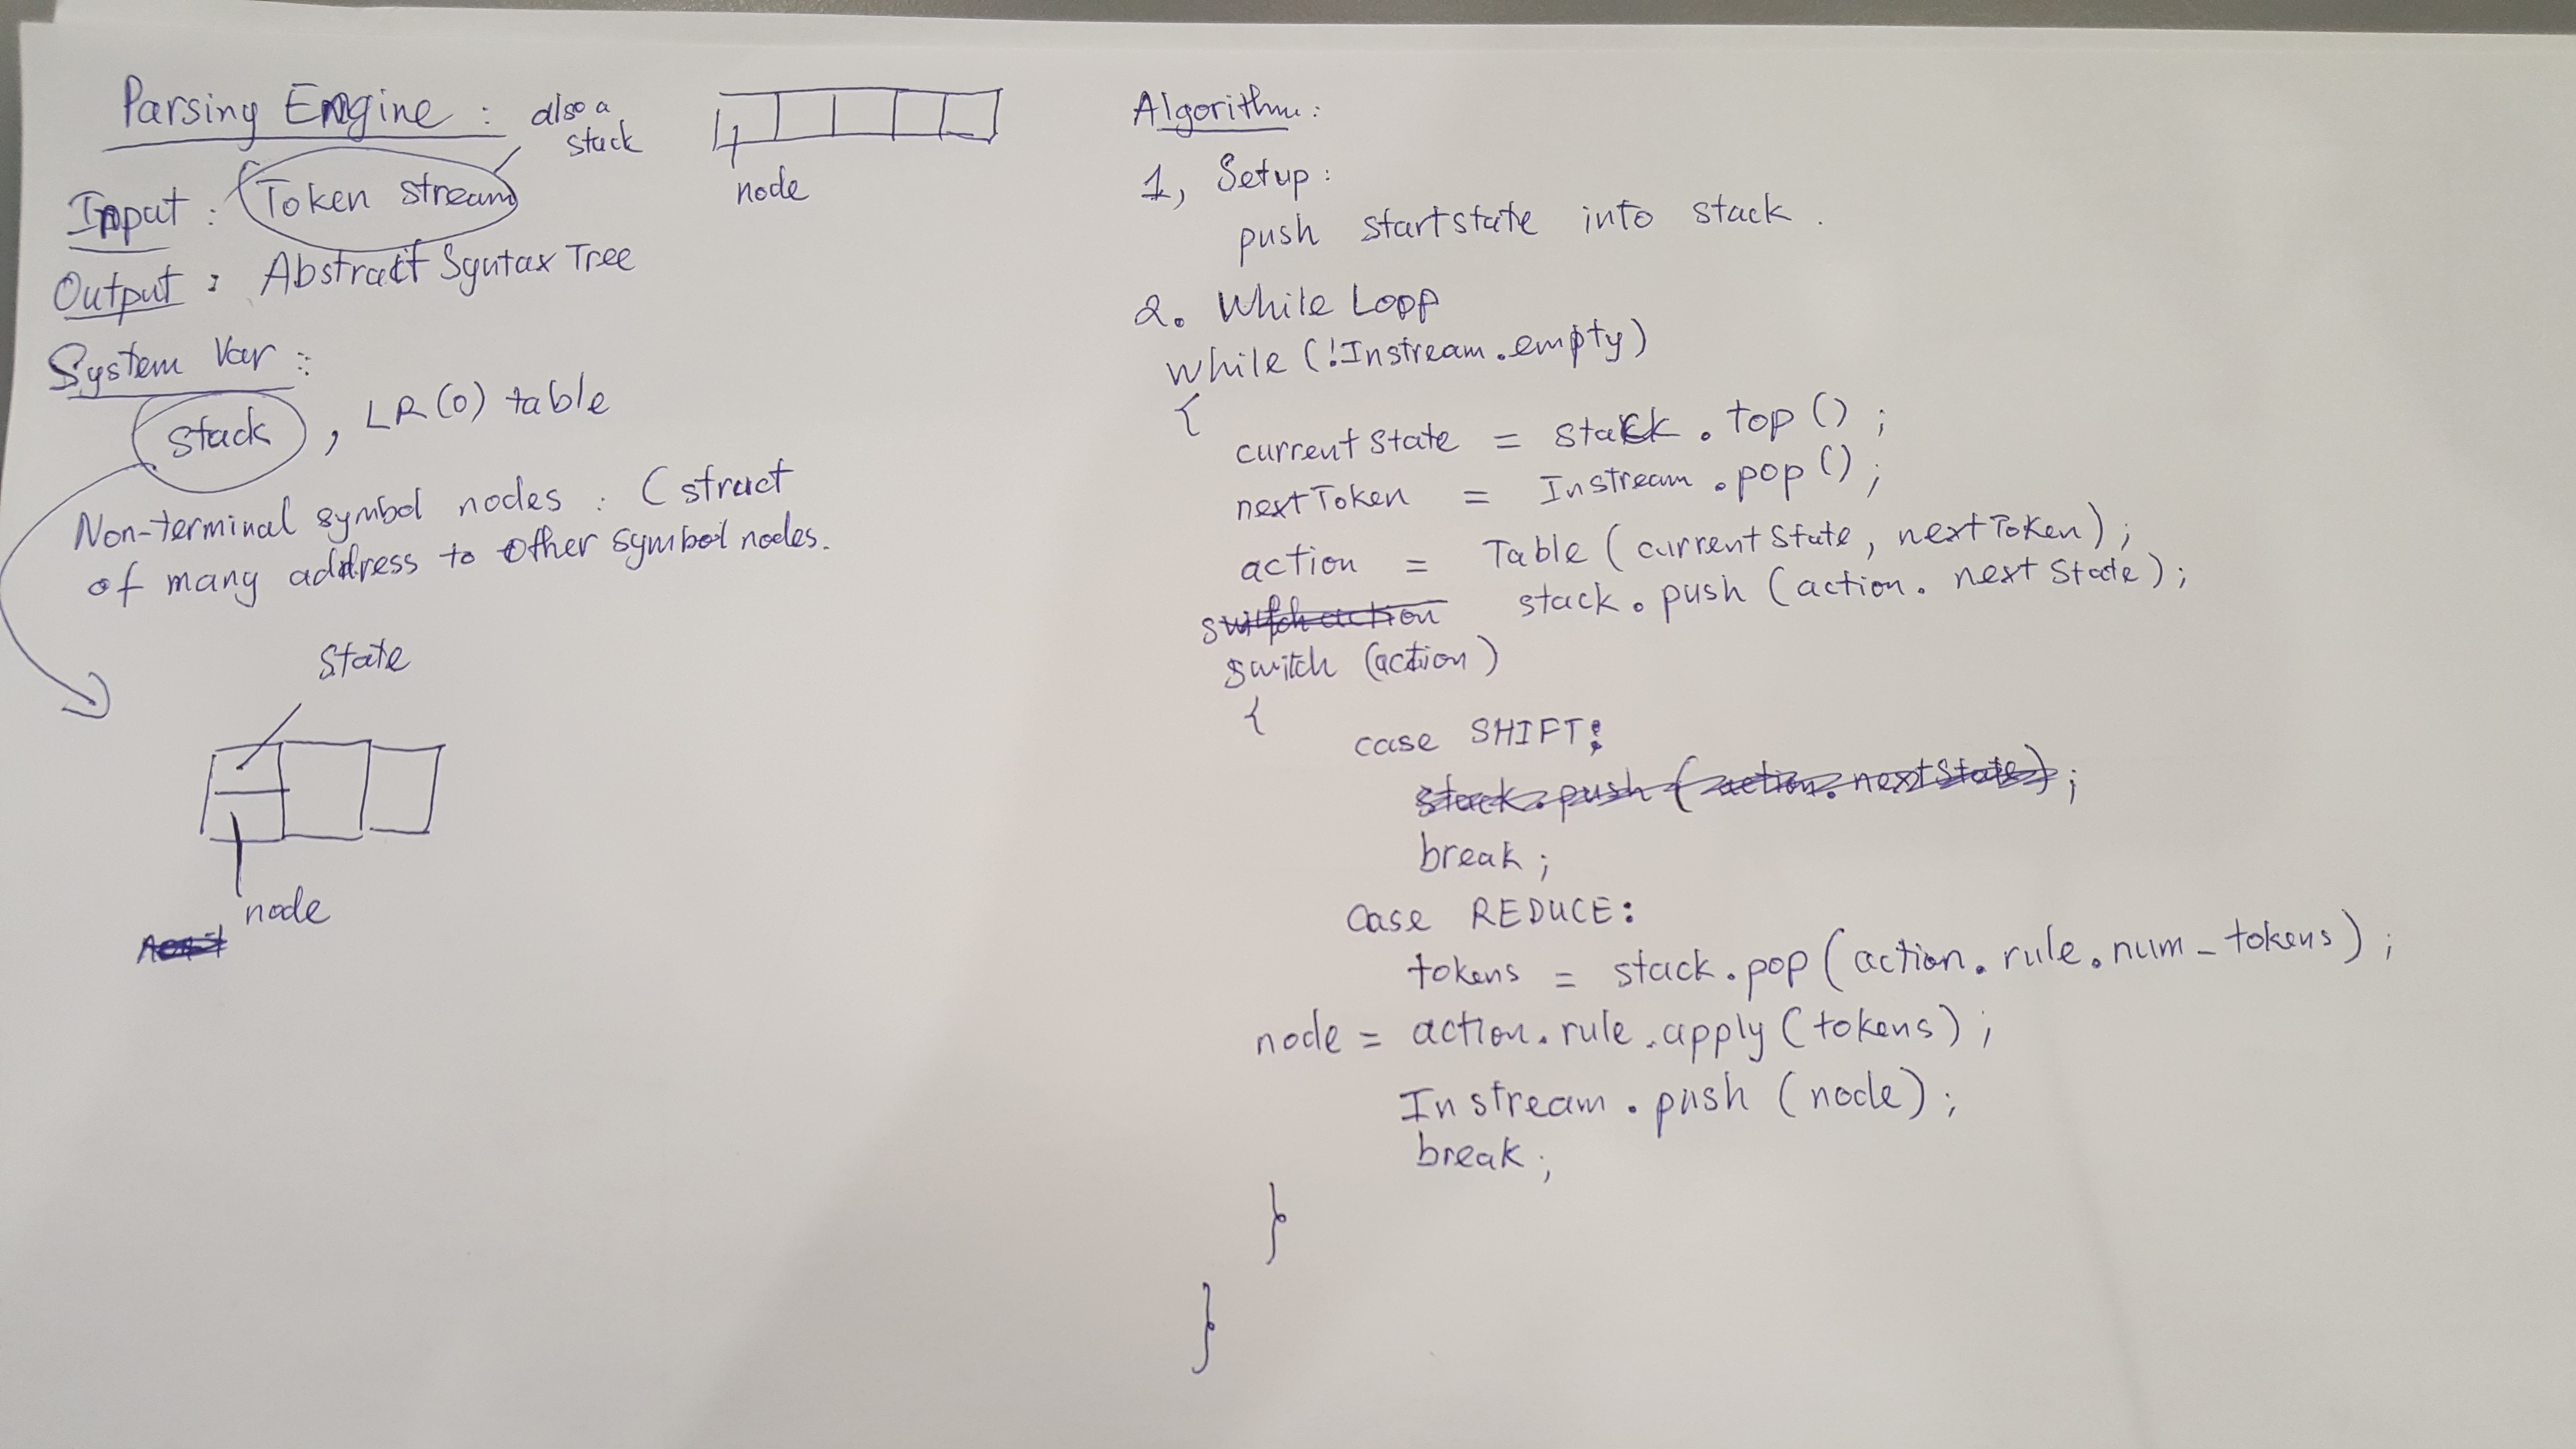 Parsing Engine :
also a
stack
node
Input : Token stream
Output : Abstract Syntax Tree
System Var :
stack , LR(0) table
Non-terminal symbol nodes : (struct
of many address to other symbol nodes.
State
node
Algorithm :
1, Setup :
push startstate into stack .
2. While Loop
while (!Instream.empty)
{
current state = stack . top () ;
nextToken = Instream . pop () ;
action = Table ( current state , nextToken ) ;
switch action stack . push ( action . next State ) ;
switch (action )
{
case SHIFT :
stack . push ( action . nextState ) ;
break ;
Case REDUCE :
tokens = stack . pop ( action . rule . num _ tokens ) ;
node = action . rule . apply ( tokens ) ;
Instream . push ( node ) ;
break ;
}
}